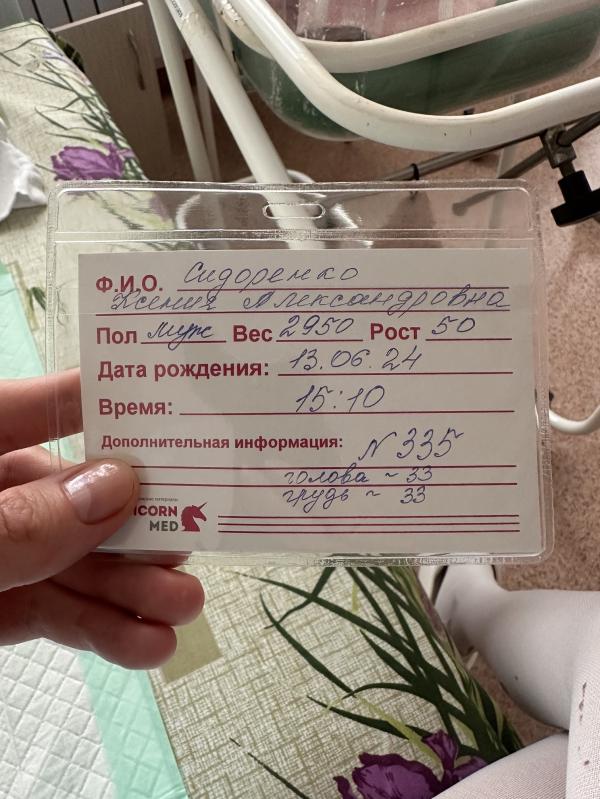 Ф.И.О. Сидоренко
Ксения Александровна
Пол муж Вес 2950 Рост 50
Дата рождения: 13.06.24
Время: 15:10
Дополнительная информация: N 335
голова ~ 33
грудь ~ 33
ICORN
MED